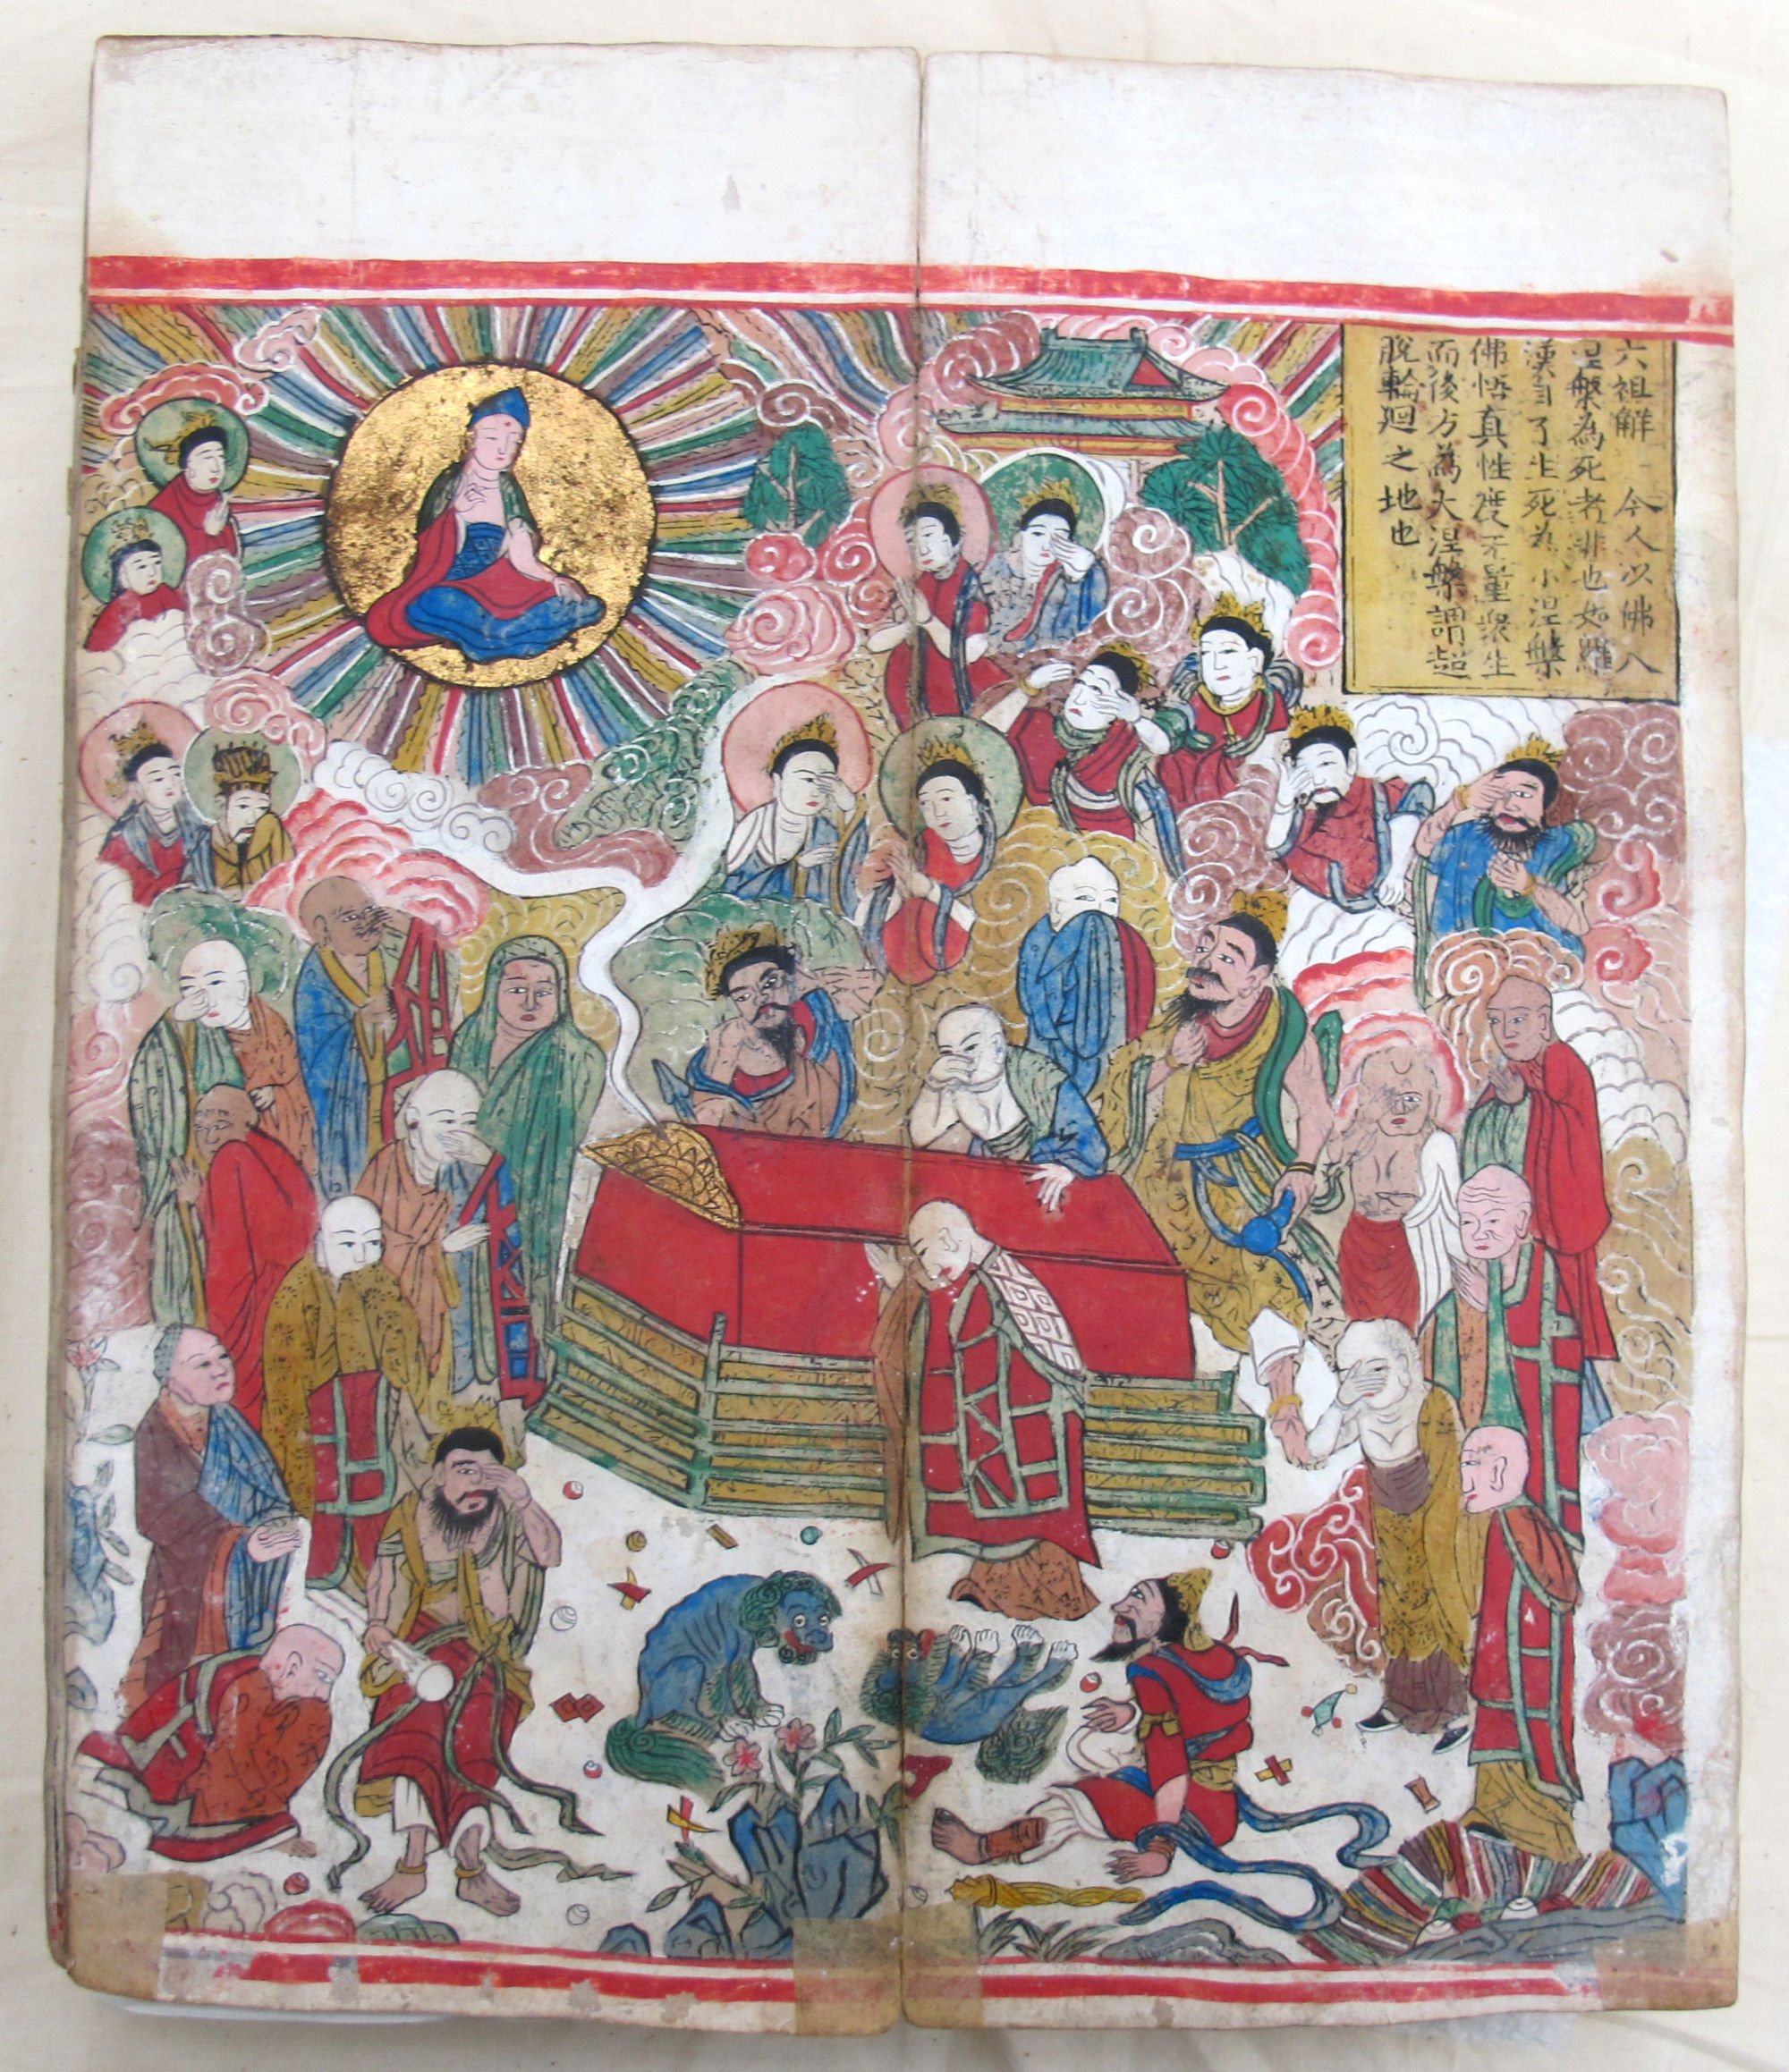 六祖解 今人以佛入
涅槃為死者非也如羅
漢自了生死為小涅槃
佛悟真性度无量眾生
而後方為大涅槃謂超
脫輪迴之地也